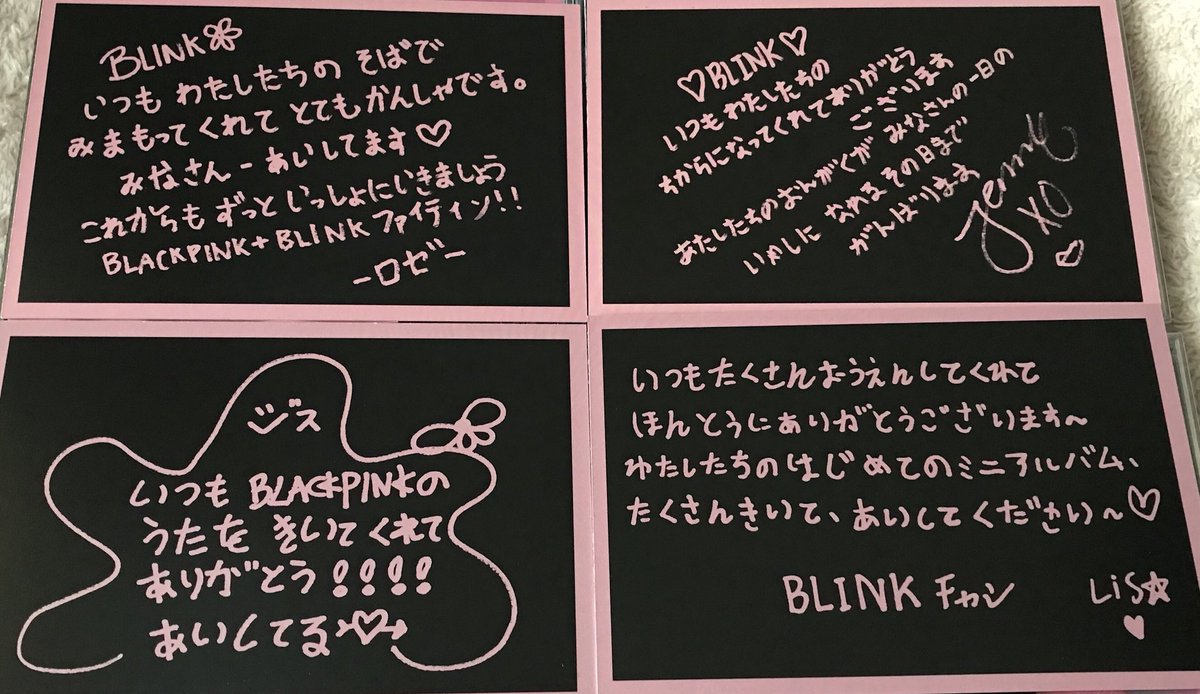 BLINK
いつも わたしたちの そばで
みまもってくれて とても かんしゃです。
みなさん－あいしてます♡
これからも ずっと いっしょにいきましょう
BLACKPINK+BLINK ファイティン!!
ーロゼー
♡BLINK♡
いつもわたしたちの
ちからになってくれてありがとう
ございます
あたしたちのおんがくが みなさんの一日の
いかしに なれる その日まで
がんばります
Jennie
XO
ジス
いつも BLACKPINKの
うたを きいて くれて
ありがとう!!!!
あいしてる♡
いつもたくさんおうえんしてくれて
ほんとうにありがとうございます~
わたしたちのはじめてのミニアルバム、
たくさんきいて、あいしてください~♡
BLINK チャン
LiS☆